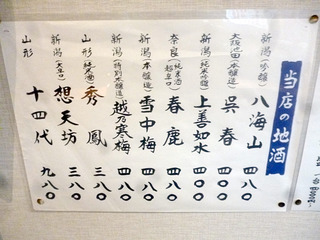 当店の地酒
新潟(吟醸) 八海山 四八〇
大阪池田(本醸造) 呉春 四〇〇
新潟(純米吟醸) 上善如水 四〇〇
奈良(純米酒 超辛口) 春鹿 四〇〇
新潟(本醸造) 雪中梅 四八〇
新潟(特別本醸造) 越乃寒梅 四八〇
山形(純大酒) 秀鳳 三八〇
新潟(大辛口) 想天坊 三八〇
山形 十四代 九八〇